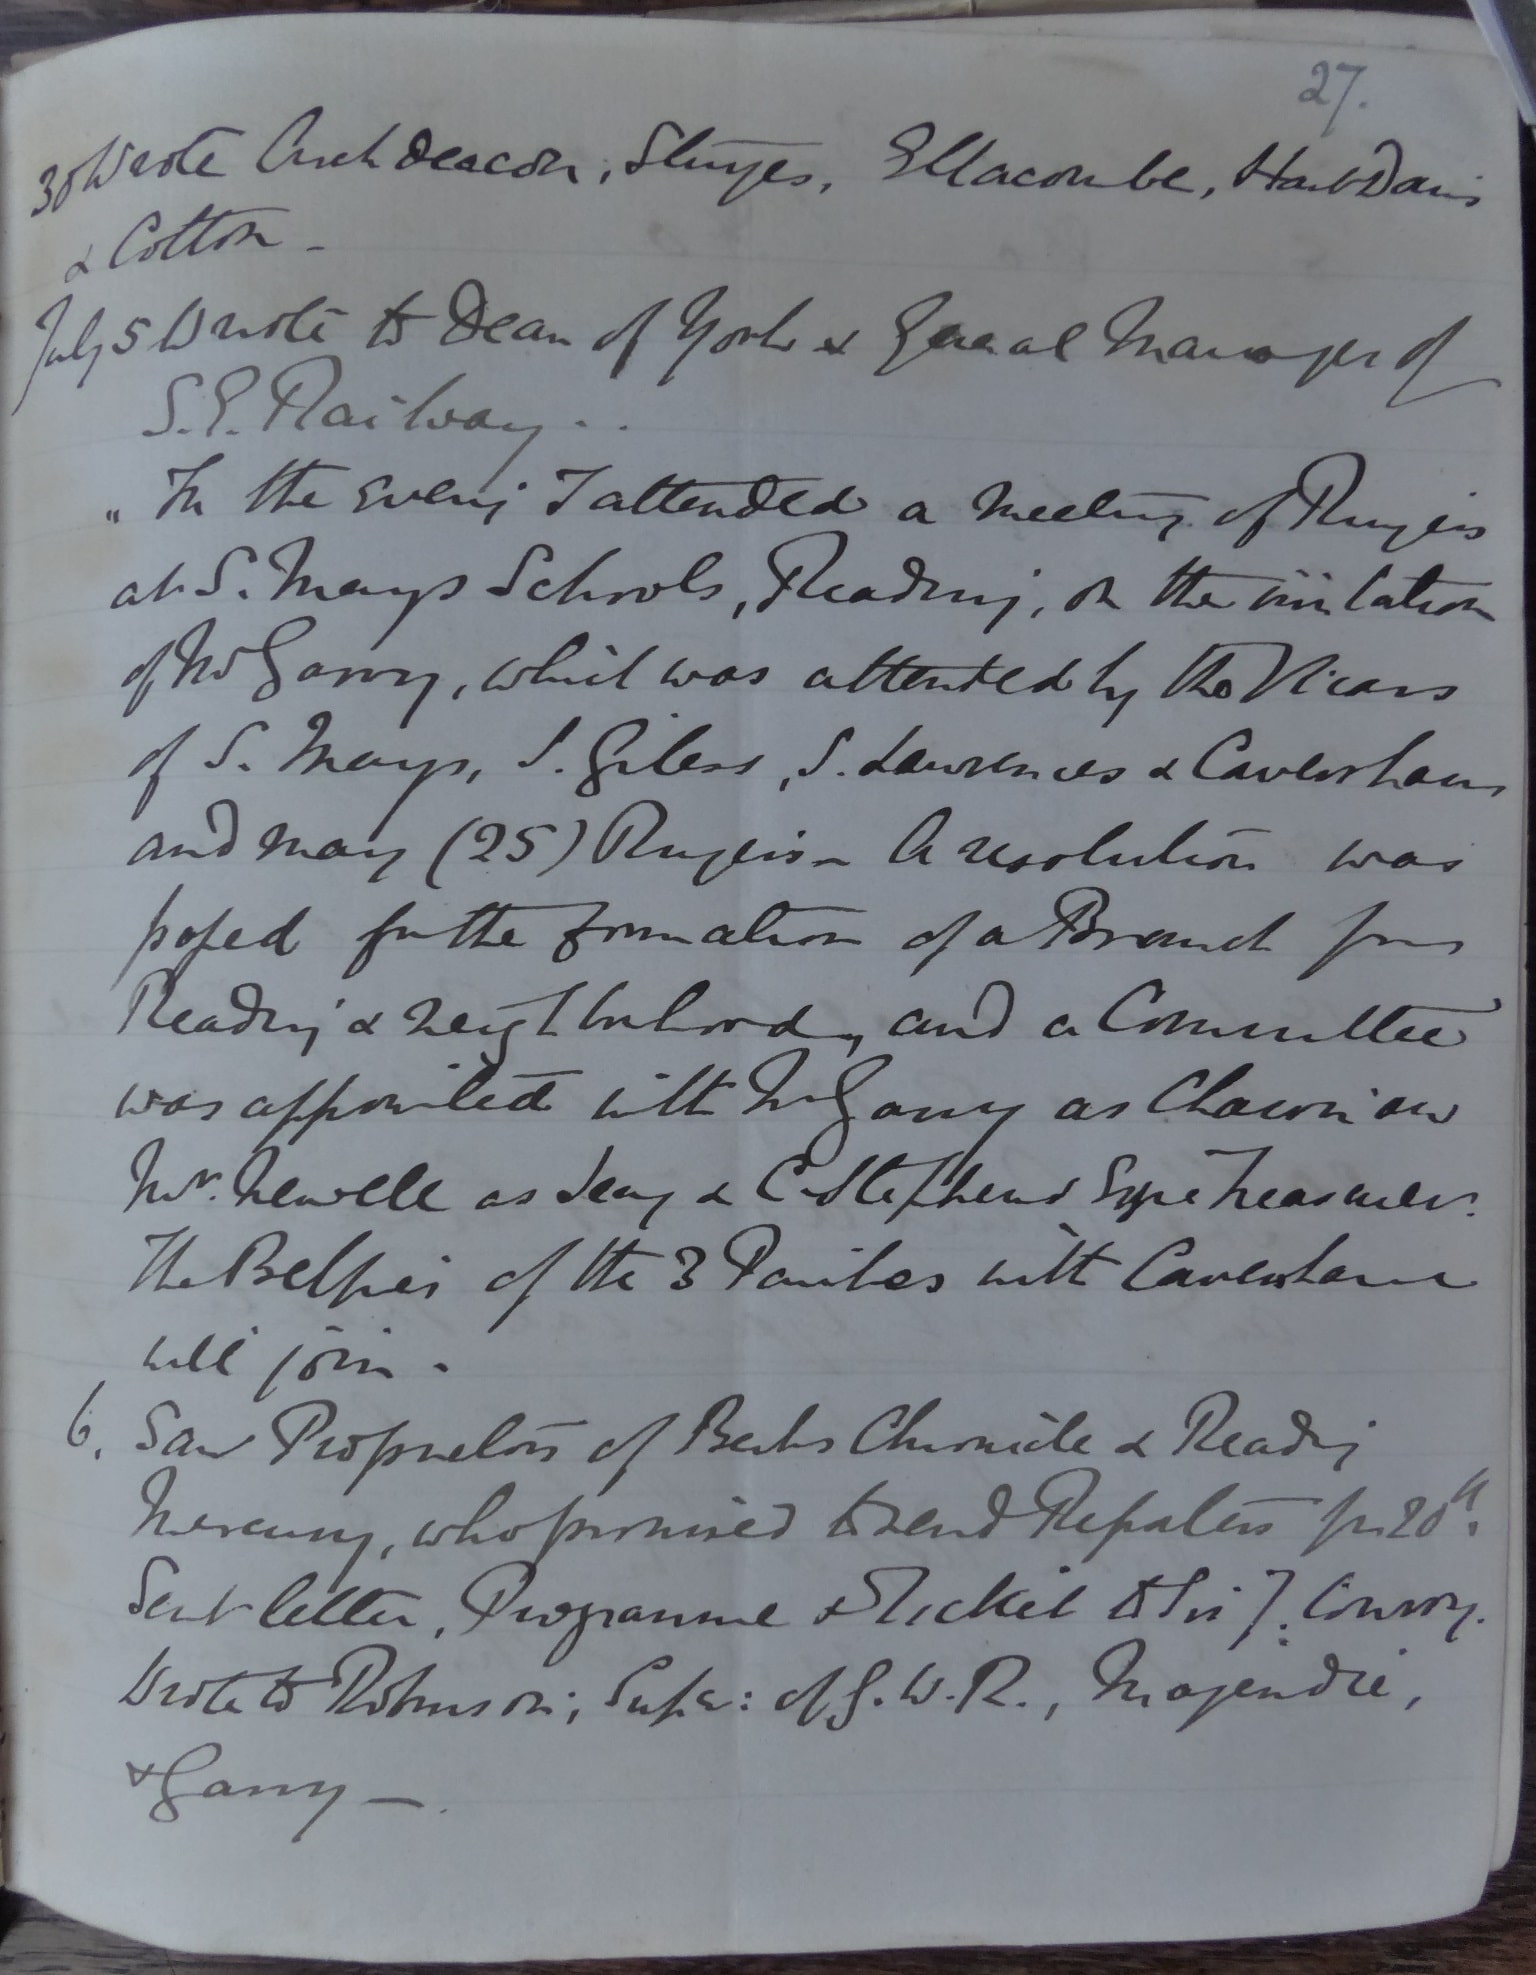 27.
30 Wrote Archdeacon, Sturges, Ellacombe, Hart Davis
& Cotton -
July 5 Wrote to Dean of York & General Manager of
S.E. Railway - .
" In the evening I attended a meeting of Ringers
at S. Marys Schools, Reading, on the invitation
of Mr Garry, which was attended by the Vicars
of S. Marys, S. Giless, S. Lawrences & Caversham
and many (25) Ringers - A resolution was
passed for the formation of a Branch for
Reading & neighbourhood, and a Committee
was appointed with Mr Garry as Chairman
Mr. Newell as Secy & C. Stephens Esqre Treasurer.
The Belfries of the 3 Parishes with Caversham
will join -
6. Saw Proprietors of Berks Chronicle & Reading
Mercury, who promised to send Reporters for 20th.
Sent letter, Programme & Ticket to Sir J. Conroy.
Wrote to Robinson; Supr: of G.W.R., Majendie,
& Garry -